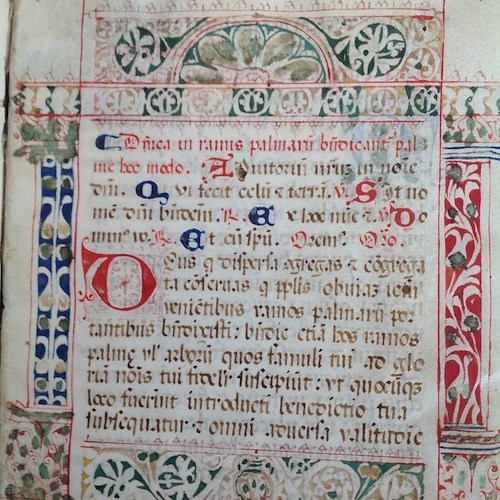 Dn̄ica in ramis palmarū bn̄dicant̄ pal
me hoc modo. Adiutoriū nr̄uȝ in noīe
dn̄i. Qui fecit celū ⁊ terrā. ℣. Sit no
mē dn̄i bn̄dcm̄. ℟. Ex hoc nūc ⁊ ℣. Do
minus vo. ℟. Et cū spū. Oremꝰ. Oro.
Deus q̄ dispersa ꝯgregas ⁊ cōgrega
ta cōseruas q̄ pplis obuiaȝ
venieētibus ramos palmarū por
tantibus bn̄dixisti: bn̄dic etiā hos ramos
palmę vl̄ arborū quos famuli tui ad glo
riā noīs tui fidelr̄ suscipiūt: vt quocūqȝ
loco fuerint introducti benedictio tua
subsequatur ⁊ omni aduersa valitudīe